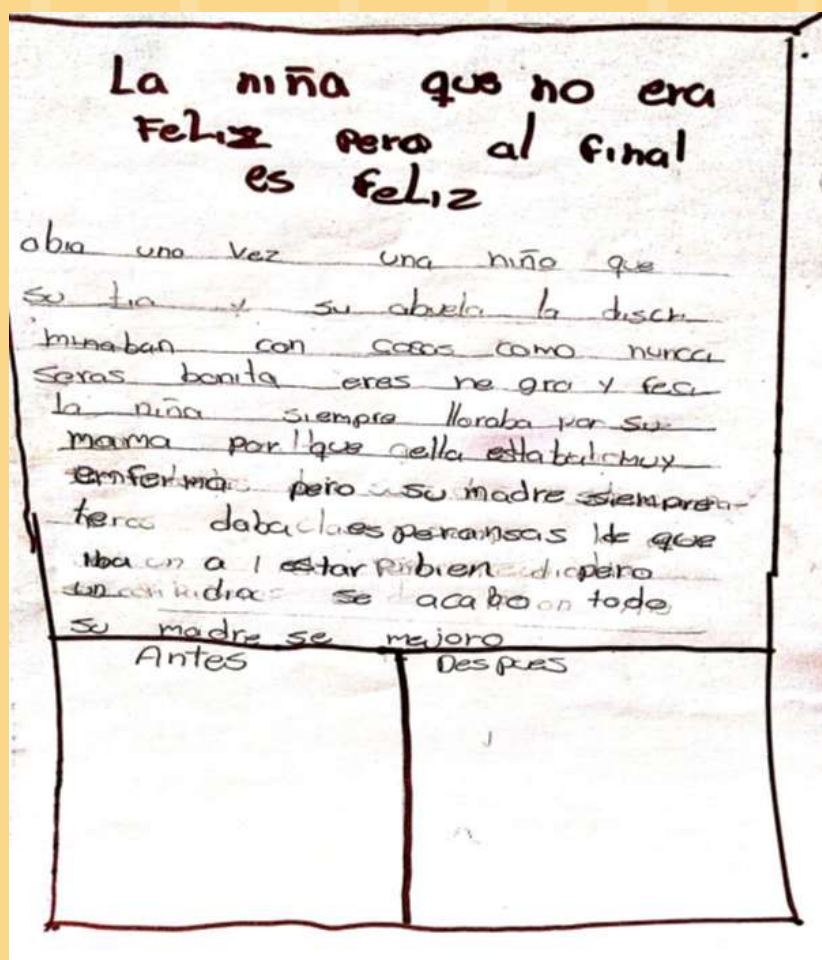 La niña que no era
Feliz pero al final
es feliz
abia una vez una niña que
su tia y su abuela la discri
minaban con cosas como nunca
seras bonita eres ne gra y fea
la niña siempre lloraba por su
mama por que ella estaba muy
enferma pero su madre siempre
daba esperansas de que
iba a estar bien pero
un dia se acabo todo
su madre se mejoro
Antes Despues